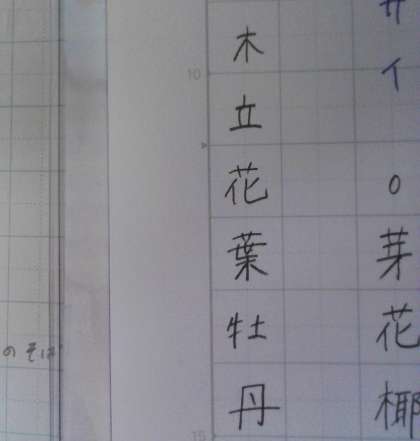 サイ。芽花椰
木立花葉牡丹
10
15
のそば